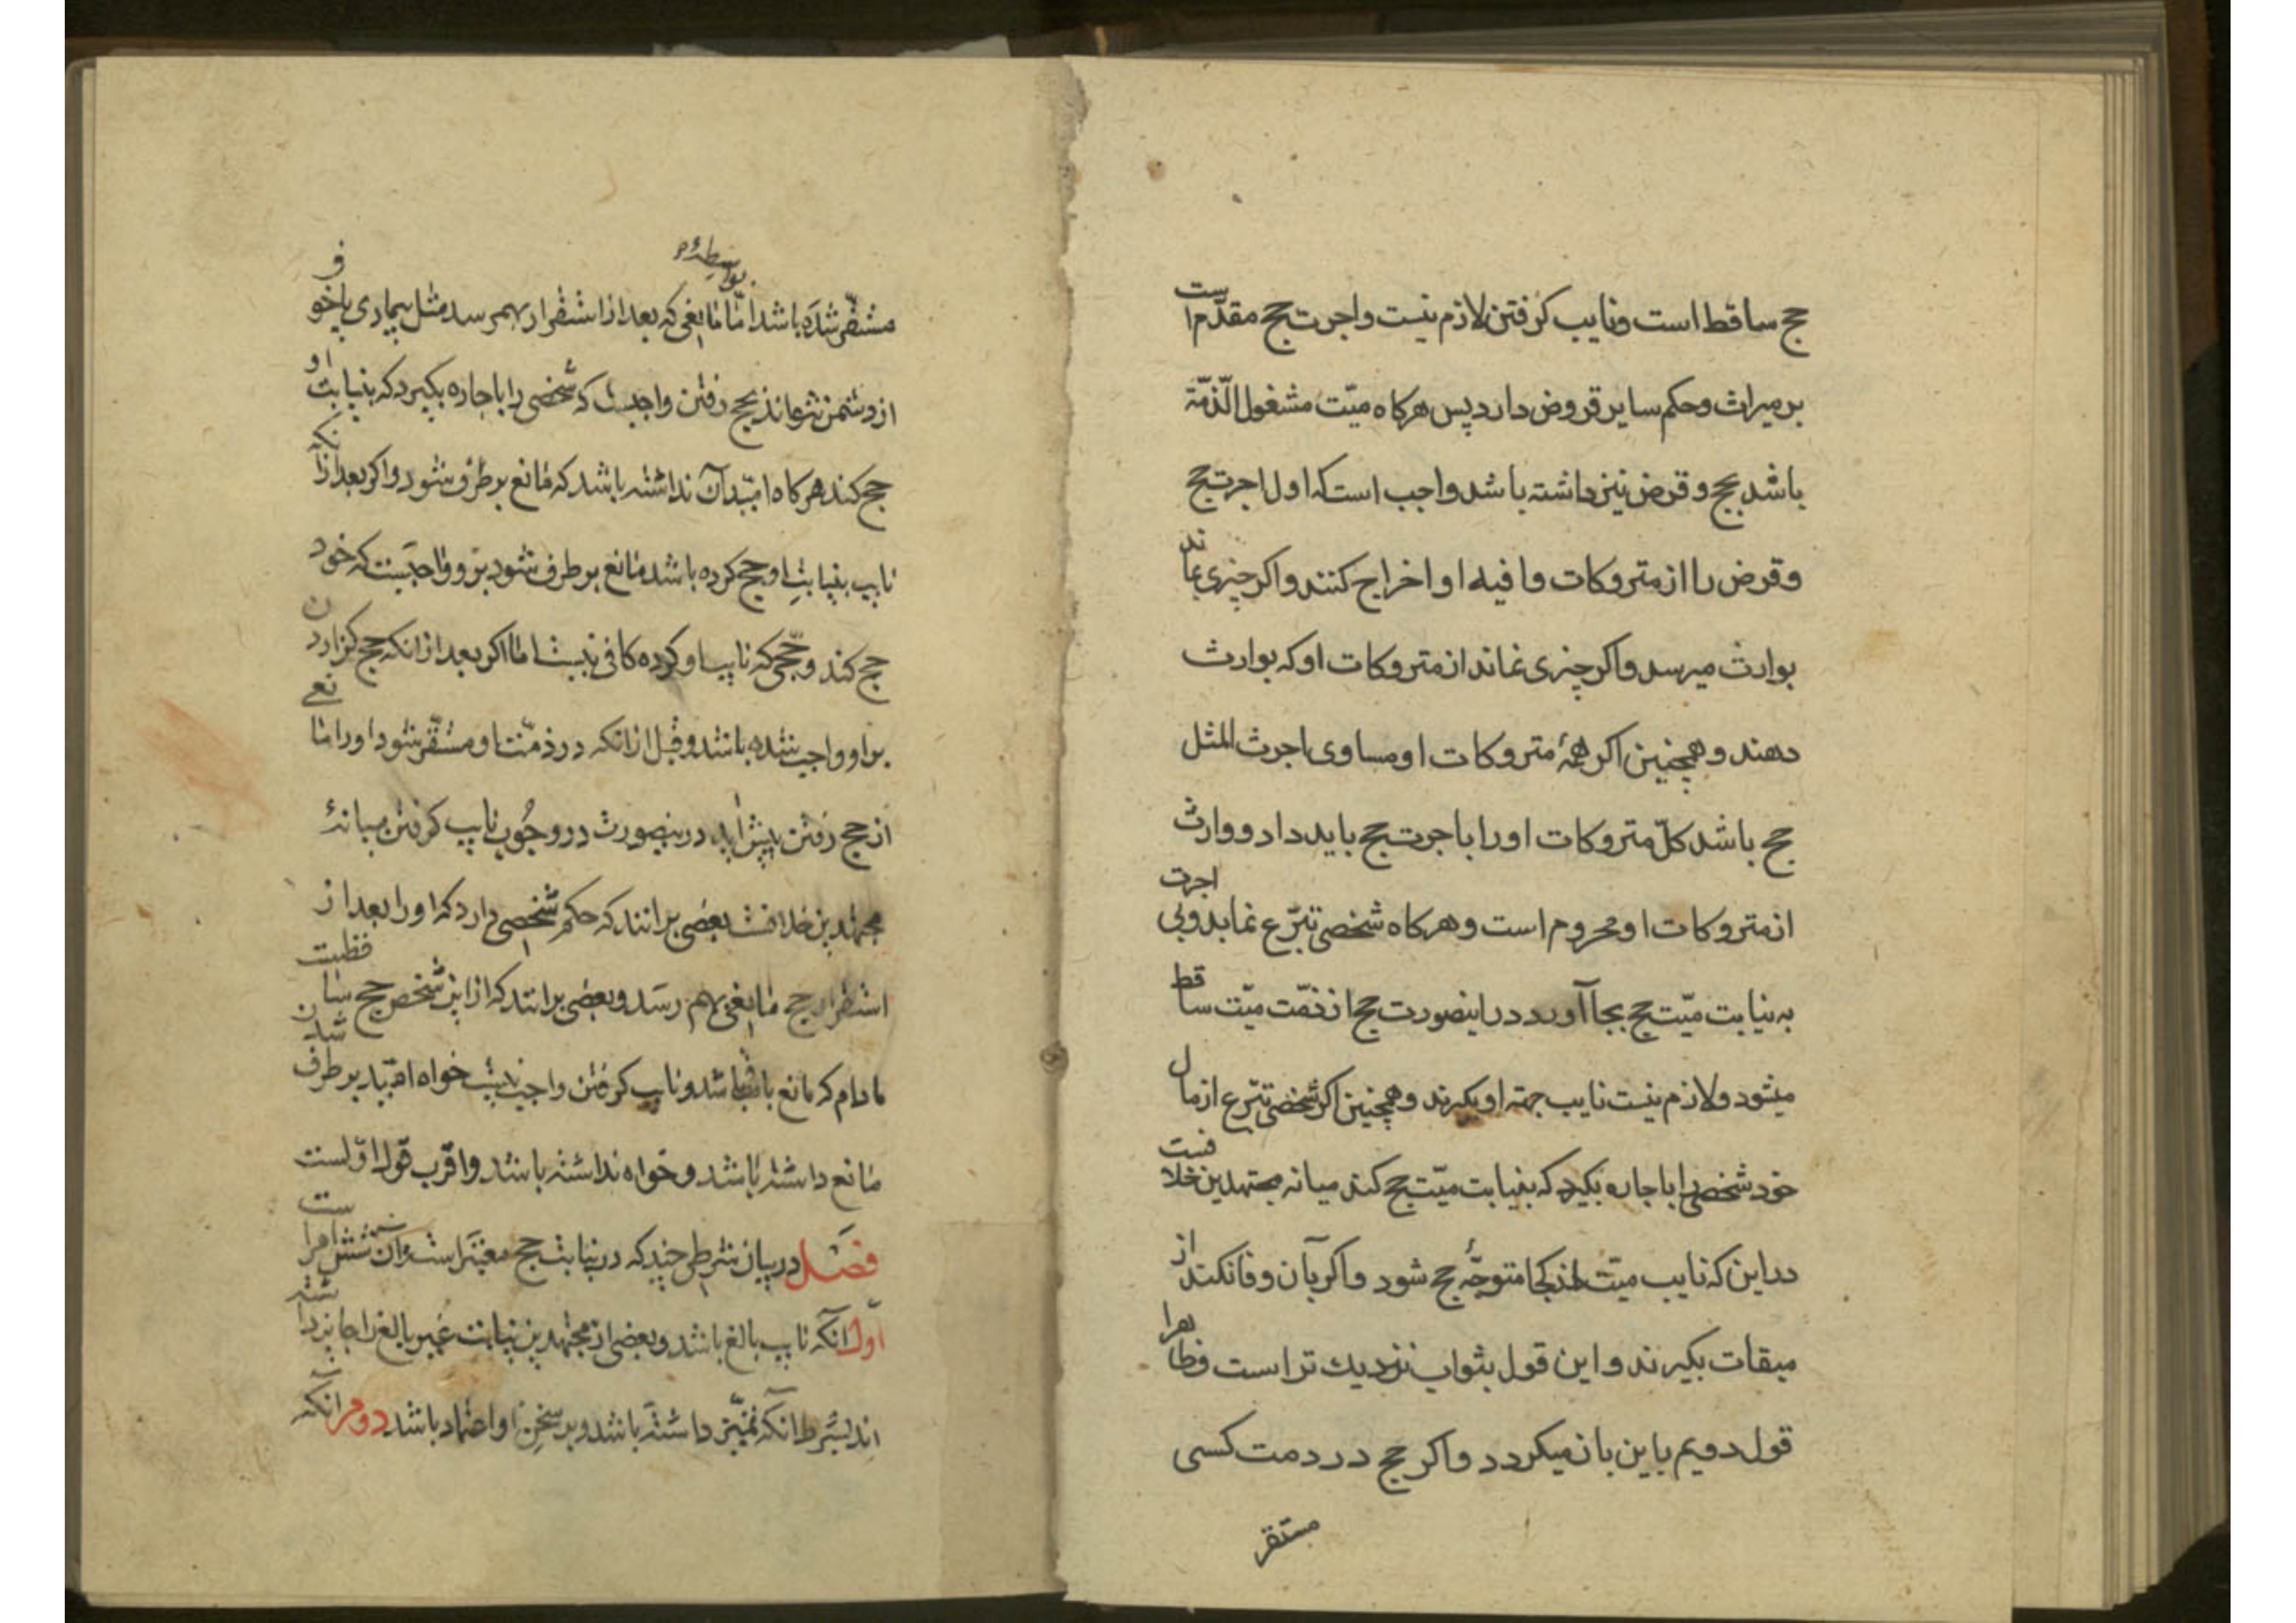 حج ساقط است و نایب کرفتن لازم نیست و اجرت حج مقدّم است
بر میراث و حکم سایر قروض دارد پس هرکاه میّت مشغول الذّمّة
باشد بحج و قرض نیز داشته باشد واجب است که اول اجرت حج
و قرض را از متروکات وافیه او اخراج کنند و اکر چیزی بماند
بوارث میرسد و اکر چیزی نماند از متروکات او که بوارث
دهند و همچنین اکر همهٔ متروکات او مساوی اجرت المثل
حج باشد کلّ متروکات او را باجرت حج باید داد و وارث
از متروکات او محروم است و هرکاه شخصی تبرّع نماید و بی اجرت
به نیابت میّت حج بجا آورد در اینصورت حج از ذمّت میّت ساقط
میشود و لازم نیست نایب جهته او بکیرند و همچنین اکر شخصی تبرّع از مال
خود شخصی را باجاره بکیرد که بنیابت میّت حج کند میانه مجتهدین خلافست
در این که نایب میّت از کجا متوجّه حج شود و اکر بآن وفا نکند از
میقات بکیرند و این قول بثواب نزدیك تر است و ظاهرا
قول دویم باین بازمیکردد و اکر حج در ذمت کسی
مستقر
مستقرّ شده باشد امّا مانعی که بعد از استقرار بهمرسد مثل بیماری یا خوف
بواسطهٔ
از دشمن نتواند بحج رفتن واجبست که شخصی را باجاره بکیرد که بنیابت او
حج کند هرکاه امّید آن نداشته باشد که مانع برطرف شود و اکر بعد از آنکه
نایب بنیابت او حج کرده باشد مانع برطرف شود برو واجبست که خود
حج کند و حجّی که نایب او کرده کافی نیست اما اکر بعد از آنکه حج کزاردن
بر او واجب شده باشد و قبل از آنکه در ذمّت او مستقّر شود او را مانعی
از حج رفتن پیش آید درینصورت در وجوب نایب کرفتن میانهٔ
مجتهدین خلافست بعضی برانند که حکم شخصی دارد که او را بعد از
استقرار حج مانعی بهم رسد و بعضی برانند که از این شخص حج ساقطست
مادام که مانع باقی باشد و نایب کرفتن واجب نیست خواه امّید برطرف شدن
مانع داشته باشد و خواه نداشته باشد و اقرب قول اوّلست
فصل در بیان شرطی چند که در نیابت حج معتبر است و آن شش امر است
اول آنکه نایب بالغ باشد و بعضی از مجتهدین نیابت غیر بالغ را جایز داشته
اند بشرط آنکه تمیّز داشته باشد و بر سخن او اعتماد باشد دوم آنکه